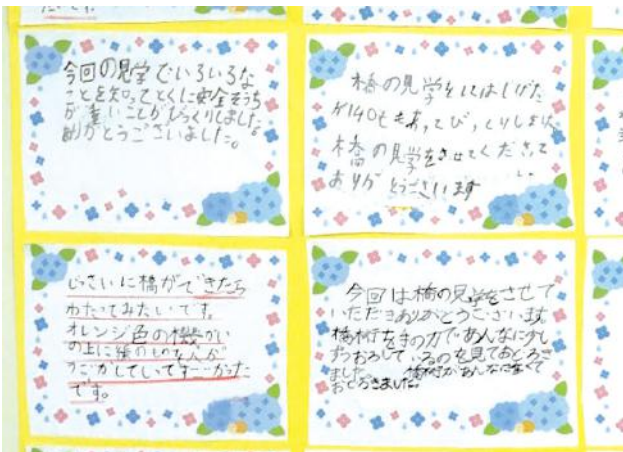 今回の見学でいろいろな
ことを知ってとくに安全そうち
が重いことがびっくりしました。
ありがとうございました。
橋の見学を
140tもあってびっくりしました
橋の見学をさせてくださって
ありがとうございます
じっさいに橋ができたら
わたってみたいです。
オレンジ色の機かい
の上に
うごかしていてすごかった
です。
今回は橋の見学をさせて
いただきありがとうございます
橋桁を手の力であんなに少し
ずつおろしているのを見ておどろき
ました。 橋桁があんなに重くて
おどろきました。